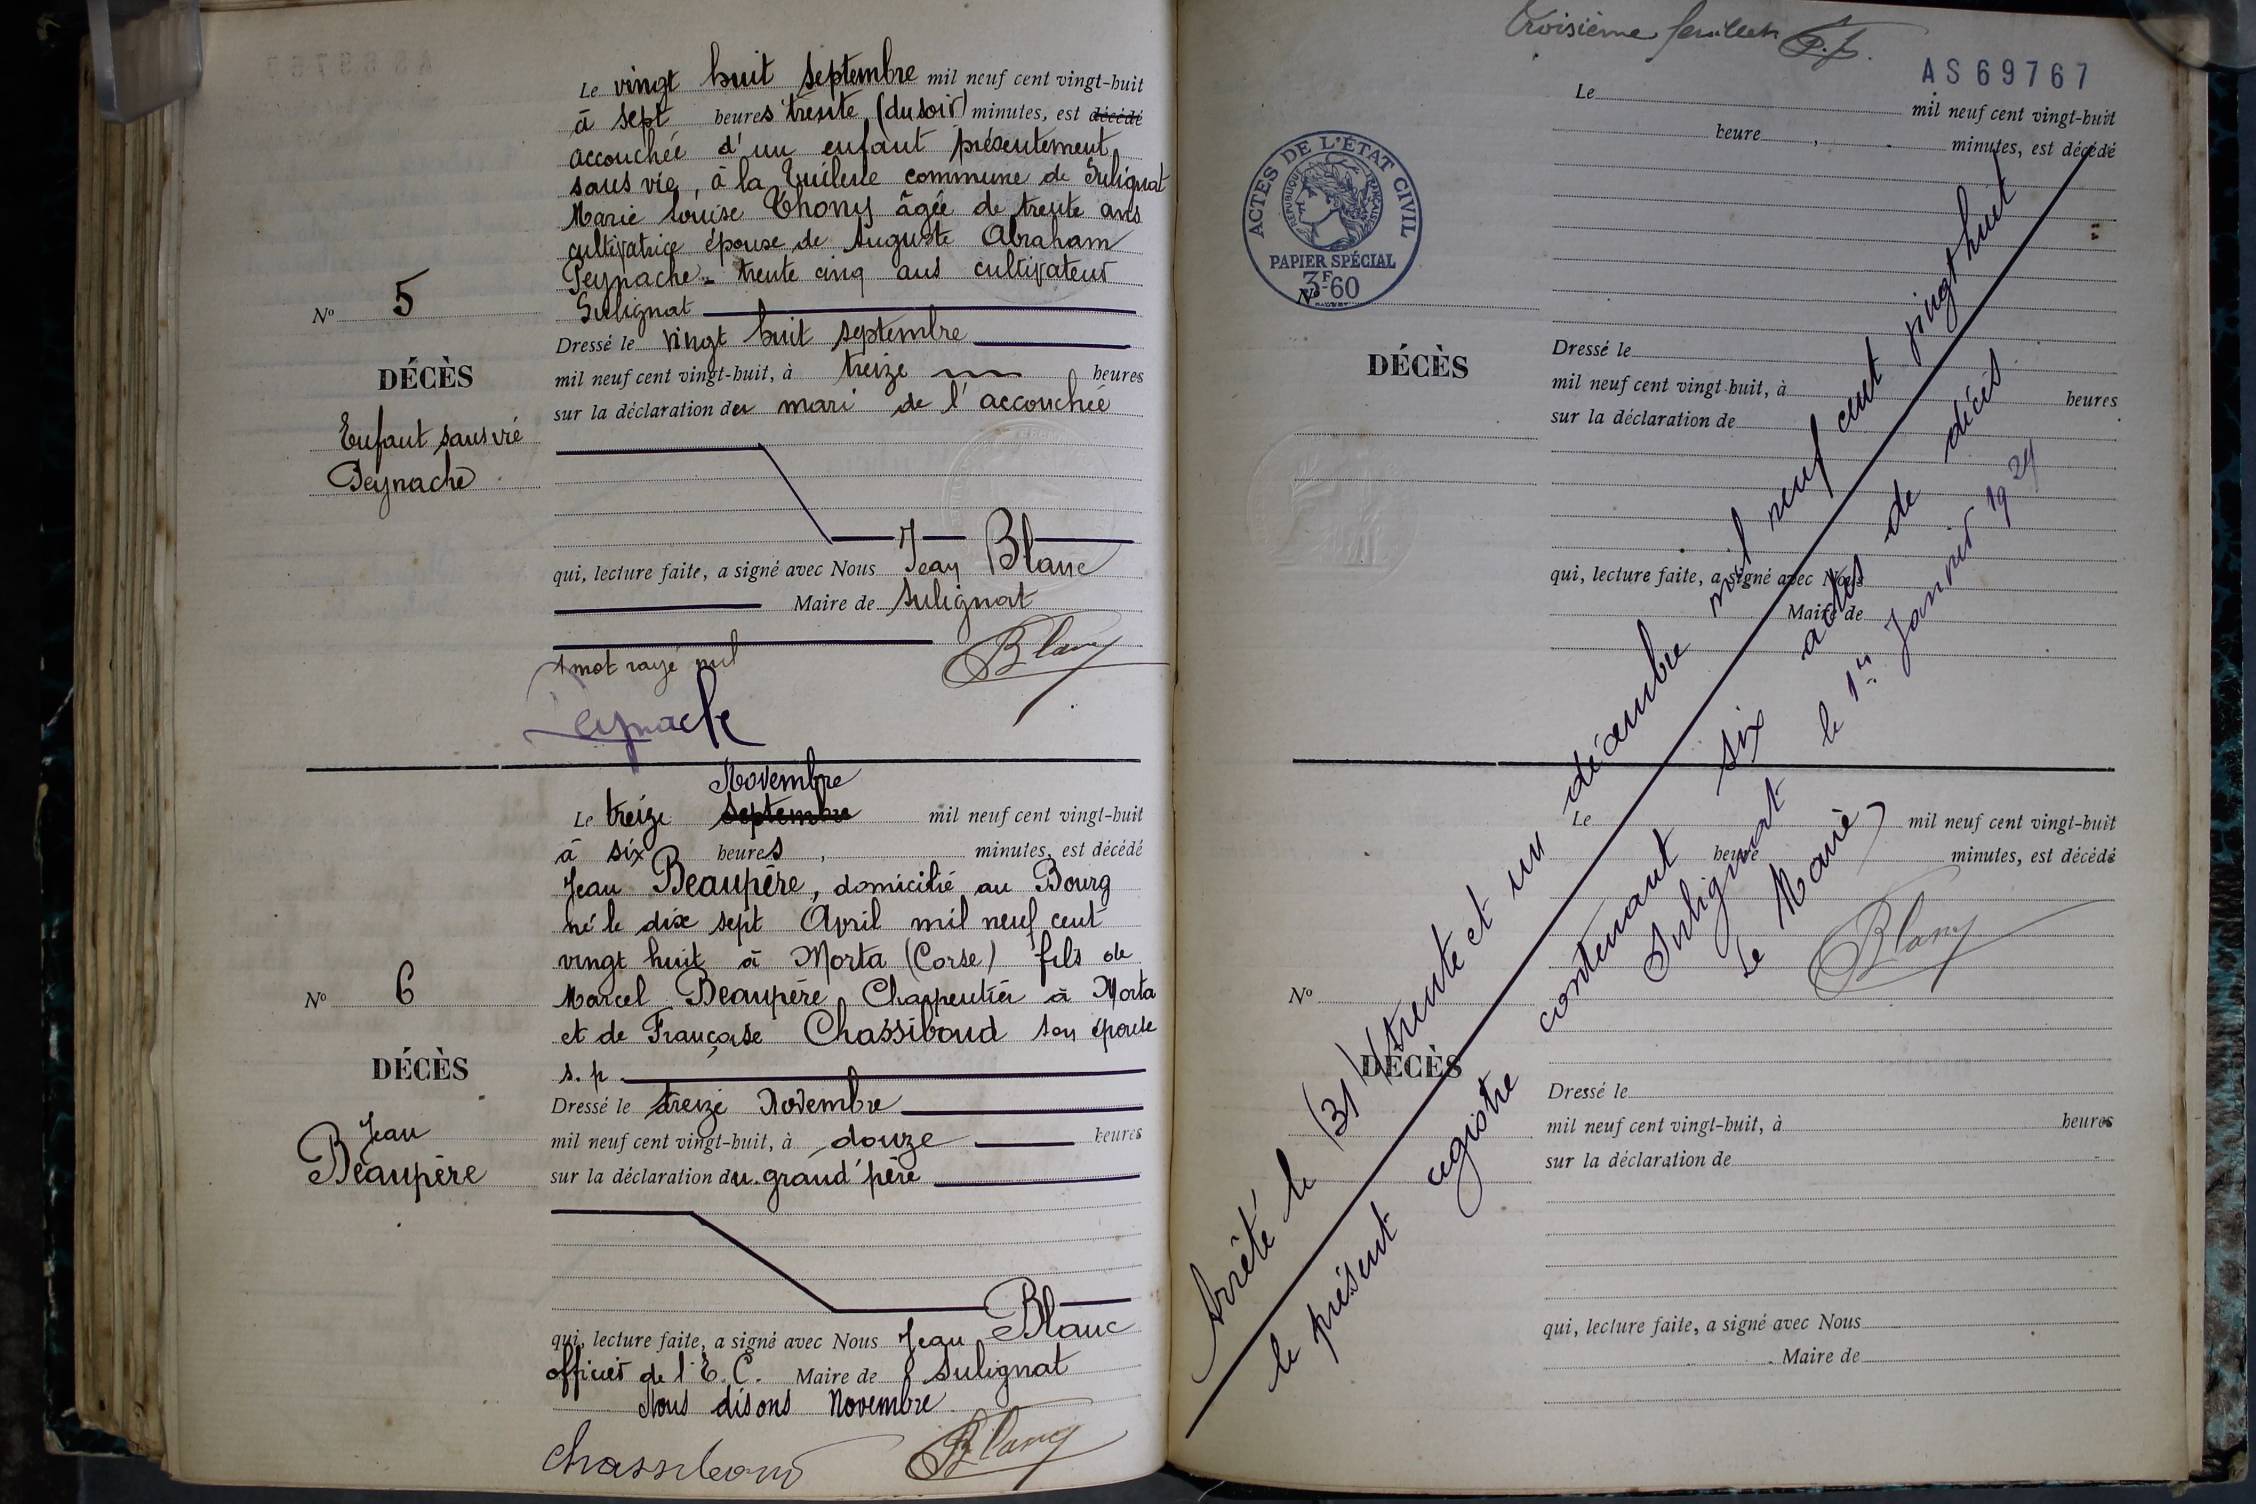 Le vingt huit septembre mil neuf cent vingt-huit
à sept heures trente (du soir) minutes, est décédé
accouchée d'un enfant présentement
sans vie, à la Tuilerie commune de Sulignat
Marie louise Thony âgée de trente ans
cultivatrice épouse de Auguste Abraham
Peynache - trente cinq ans cultivateur
Sulignat
N° 5
DÉCÈS
Enfant sans vie
Peynache
Dressé le vingt huit septembre
mil neuf cent vingt-huit, à treize heures
sur la déclaration du mari de l'accouchée
qui, lecture faite, a signé avec Nous Jean Blanc
Maire de Sulignat
1 mot rayé nul
Blanc
Peynache
Novembre
Le treize septembre mil neuf cent vingt-huit
à six heures , minutes, est décédé
Jean Beaupère, domicilié au Bourg
né le dix sept Avril mil neuf cent
vingt huit à Morta (Corse) fils de
Marcel Beaupère Charpentier à Morta
et de Françoise Chassiboud son épouse
s. p.
N° 6
DÉCÈS
Jean
Beaupère
Dressé le treize Novembre
mil neuf cent vingt-huit, à douze heures
sur la déclaration du grand'père
qui, lecture faite, a signé avec Nous Jean Blanc
officier de l'E. C. Maire de Sulignat
Nous disons Novembre
Chassiboud
Blanc
troisième feuillet
AS69767
ACTES DE L'ÉTAT CIVIL
RÉPUBLIQUE FRANÇAISE
PAPIER SPÉCIAL
3F60
Le mil neuf cent vingt-huit
heure , minutes, est décédé
N°
DÉCÈS
Dressé le
mil neuf cent vingt-huit, à heures
sur la déclaration de
qui, lecture faite, a signé avec Nous
Maire de
Le mil neuf cent vingt-huit
heure minutes, est décédé
N°
DÉCÈS
Dressé le
mil neuf cent vingt-huit, à heures
sur la déclaration de
qui, lecture faite, a signé avec Nous
Maire de
Arrêté le (31) trente et un décembre mil neuf cent vingt huit
le présent registre contenant six actes de décès
Sulignat le 1er Janvier 1929
Le Maire
Blanc